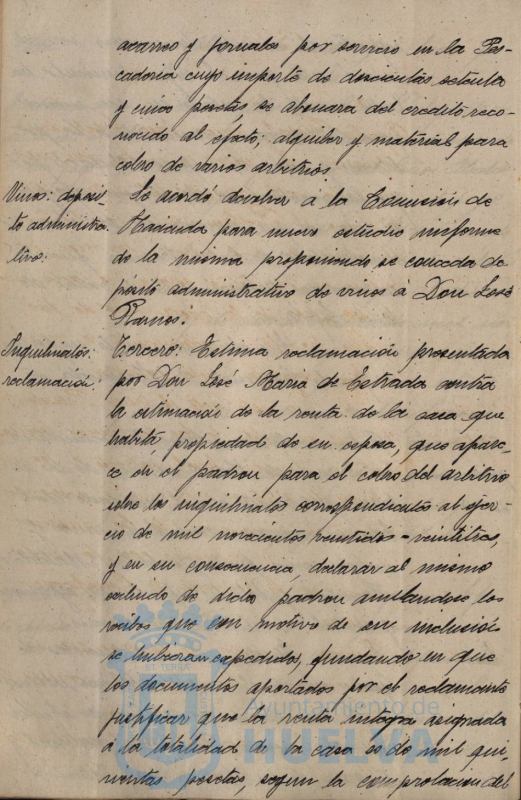 acarreo y jornales por servicio en la Pes-
cadería cuyo importe de doscientas setenta
y cinco pesetas, se abonará del crédito reco-
nocido al efecto; alquiler y material para
cobro de varios arbitrios.
Vinos: deposi-
to administra-
tivo:
Se acordó devolver á la Comisión de
Hacienda para nuevo estudio informe
de la misma proponiendo se conceda de-
pósito administrativo de vinos á Don José
Ramos.
Inquilinatos:
reclamación:
Tercero: Estima reclamación presentada
por Don José Maria de Estrada contra
la estimación de la renta de la casa que
habita, propiedad de su esposa, que apare-
ce en el padron para el cobro del arbitrio
sobre los inquilinatos correspondientes al ejer-
cicio de mil novecientos veintidós-veintitres,
y en su consecuencia, declarar al mismo
excluido de dicho padron anulandose los
recibos que con motivo de su inclusión
se hubieran expedidos, fundando en que
los documentos aportados por el reclamante
justifican que la renta integra asignada
a la totalidad de la casa es de mil qui-
nientas pesetas, segun la comprobación del
Ayuntamiento de
HUELVA